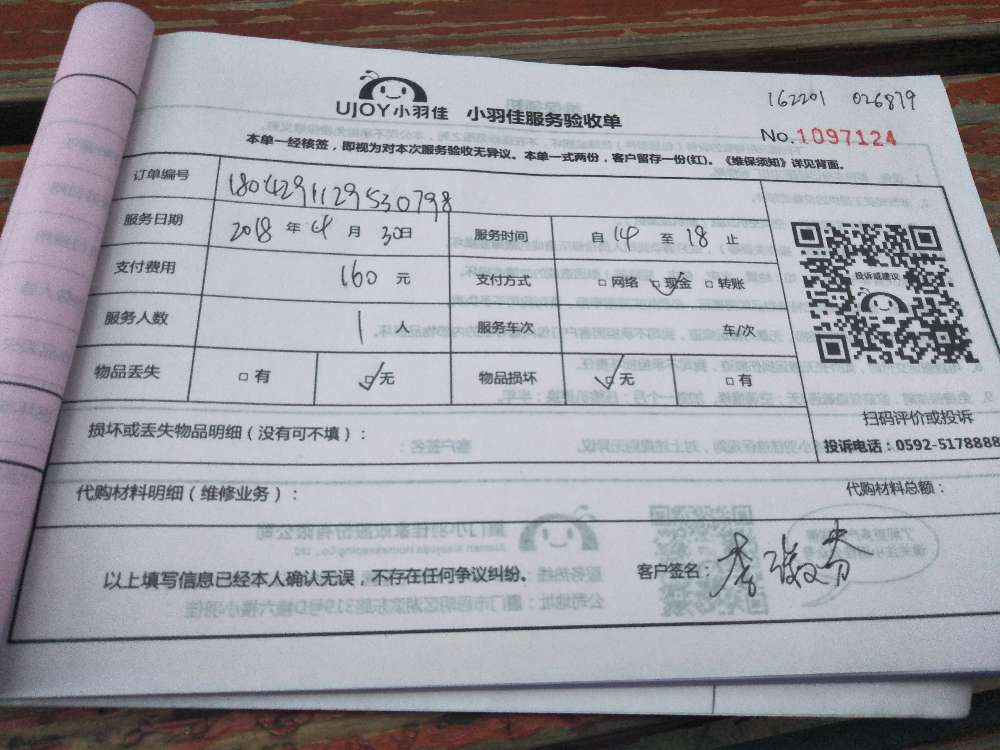 162201 026879
UJOY小羽佳 小羽佳服务验收单
No.1097124
本单一经核签，即视为对本次服务验收无异议。本单一式两份，客户留存一份(红)。《维保须知》详见背面。
订单编号 180429112953​0798
服务日期 2018 年 4 月 30日 服务时间 自 14 至 18 止
支付费用 160 元 支付方式 □网络 □现金 □转账
投诉或建议
服务人数 1 人 服务车次 车/次
物品丢失 □有 ☑无 物品损坏 ☑无 □有
扫码评价或投诉
损坏或丢失物品明细（没有可不填）：
投诉电话：0592-5178888
代购材料明细（维修业务）： 代购材料总额：
以上填写信息已经本人确认无误，不存在任何争议纠纷。 客户签名：